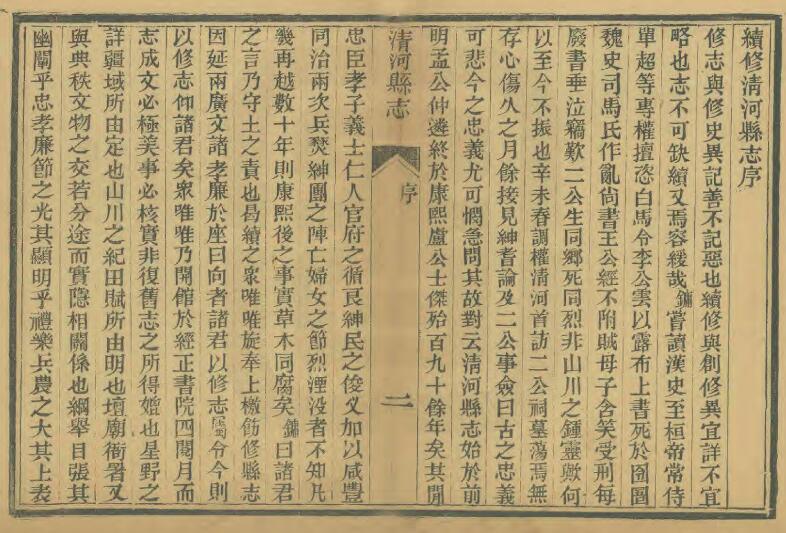 續修清河縣志序
修志與修史異記善不記惡也續修與創修異宜詳不宜
略也志不可缺續又焉容緩哉鏞嘗讀漢史至桓帝常侍
單超等專權擅恣白馬令李公雲以露布上書死於囹圄
魏史司馬氏作亂尚書王公經不附賊母子含笑受刑每
廢書垂泣竊歎二公生同鄉死同烈非山川之鍾靈歟何
以至今不振也辛未春調權清河首訪二公祠墓蕩焉無
存心傷久之月餘接見紳耆論及二公事僉曰古之忠義
可悲今之忠義尤可憫急問其故對云清河縣志始於前
明孟公仲遴終於康熙盧公士傑殆百九十餘年矣其間
清河縣志
序
二
忠臣孝子義士仁人官府之循良紳民之俊乂加以咸豐
同治兩次兵燹紳團之陣亡婦女之節烈湮没者不知凡
幾再越數十年則康熙後之事實草木同腐矣鏞曰諸君
之言乃守土之責也曷續之衆唯唯旋奉上檄飭修縣志
因延兩廣文諸孝廉於座曰向者諸君以修志屬令今則
以修志仰諸君矣衆唯唯乃開館於經正書院四閱月而
志成文必極美事必核實非復舊志之所得媲也星野之
詳疆域所由定也山川之紀田賦所由明也壇廟衙署又
與典秩文物之交若分途而實隱相關係也綱舉目張其
幽闡乎忠孝廉節之光其顯明乎禮樂兵農之大其上表